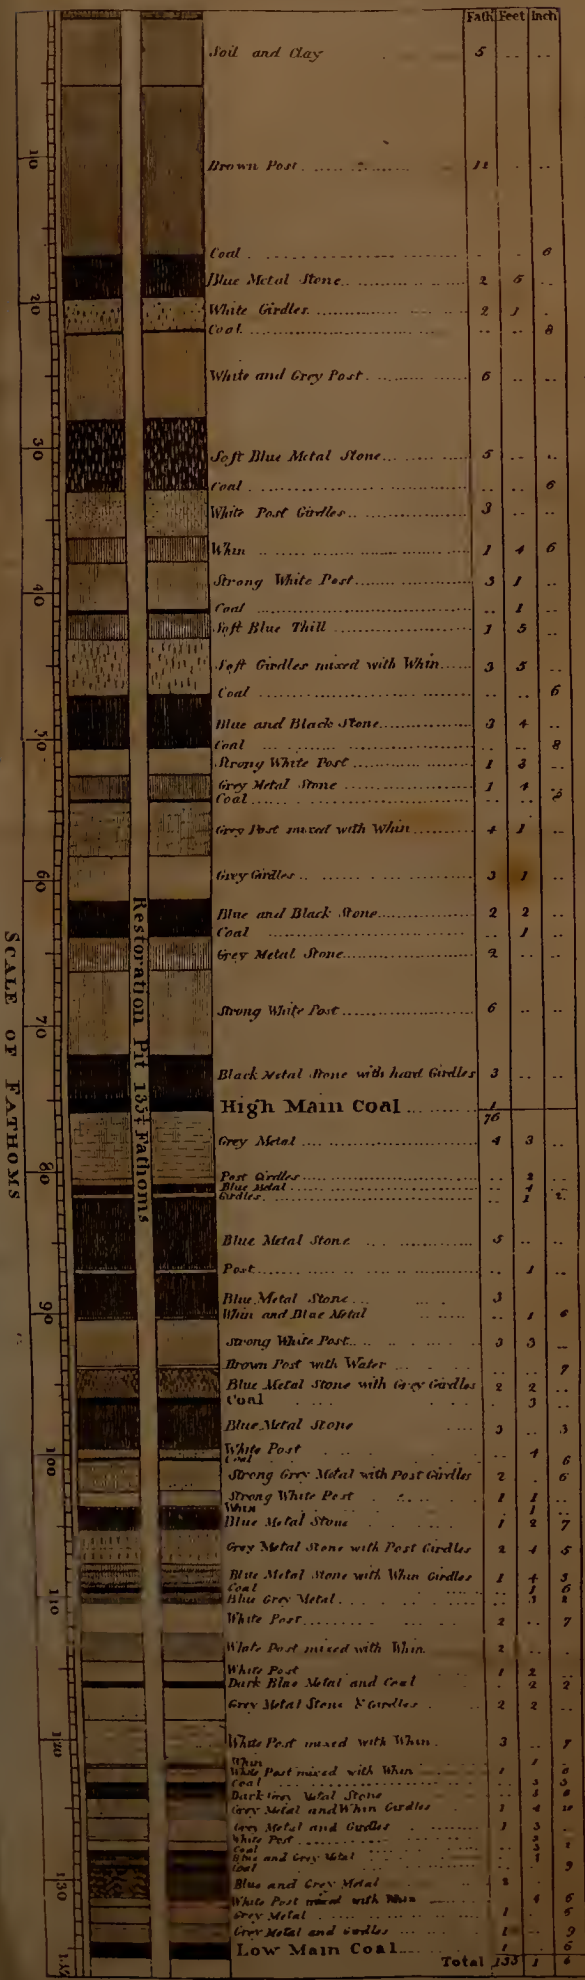 Fath Feet Inch
Soil and Clay 5 .. ..
Brown Post 12 . ..
Coal . . 6
Blue Metal Stone 2 5 ..
White Girdles 2 1 .
Coal .. .. 8
White and Grey Post 6 .. ..
Soft Blue Metal Stone 5 .. ..
Coal .. .. 6
White Post Girdles 3 .. ..
Whin 1 4 6
Strong White Post 3 1 ..
Coal .. 1 ..
Soft Blue Thill 1 5 ..
Soft Girdles mixed with Whin 3 5 ..
Coal .. .. 6
Blue and Black Stone 3 4 ..
Coal .. .. 8
Strong White Post 1 3 ..
Grey Metal Stone 1 4 ..
Coal
Grey Post mixed with Whin 4 1 ..
Grey Girdles 3 1 ..
Blue and Black Stone 2 2 ..
Coal .. 1 ..
Grey Metal Stone 2 .. ..
Strong White Post 6 .. ..
Black Metal Stone with hard Girdles 3 .. ..
High Main Coal 1
76
Grey Metal 4 3 ..
Post Girdles .. 2 ..
Blue Metal .. 4 ..
Girdles .. 1 2
Blue Metal Stone 5 .. ..
Post .. 1 ..
Blue Metal Stone 3
Whin and Blue Metal .. 1 6
Strong White Post 3 3 ..
Brown Post with Water .. .. 7
Blue Metal Stone with Grey Girdles 2 2 ..
Coal .. 3 ..
Blue Metal Stone 3 .. 3
White Post .. 4 ..
Coal 6
Strong Grey Metal with Post Girdles 2 . 6
Strong White Post 1 1 ..
Whin .. 1 ..
Blue Metal Stone 1 2 7
Grey Metal Stone with Post Girdles 2 4 5
Blue Metal Stone with Whin Girdles 1 4 3
Coal .. 1 6
Blue Grey Metal .. 3 2
White Post 2 .. 7
White Post mixed with Whin 2 .. .
White Post 1 2 ..
Dark Blue Metal and Coal . 2 2
Grey Metal Stone & Girdles 2 2 ..
White Post mixed with Whin 3 .. 7
Whin .. 1 ..
White Post mixed with Whin 1
Coal 3 3
Dark Grey Metal Stone
Grey Metal and Whin Girdles 1 4 10
Grey Metal and Girdles 1 3
White Post
Coal 3
Blue and Grey Metal
Coal 9
Blue and Grey Metal 2
White Post mixed with Whin 4 6
Grey Metal 1
Grey Metal and Girdles 1 .. 9
Low Main Coal 1 .. 6
Total 133 1 6
Restoration Pit 135¼ Fathoms
SCALE OF FATHOMS
10
20
30
40
50
60
70
80
90
100
110
120
130